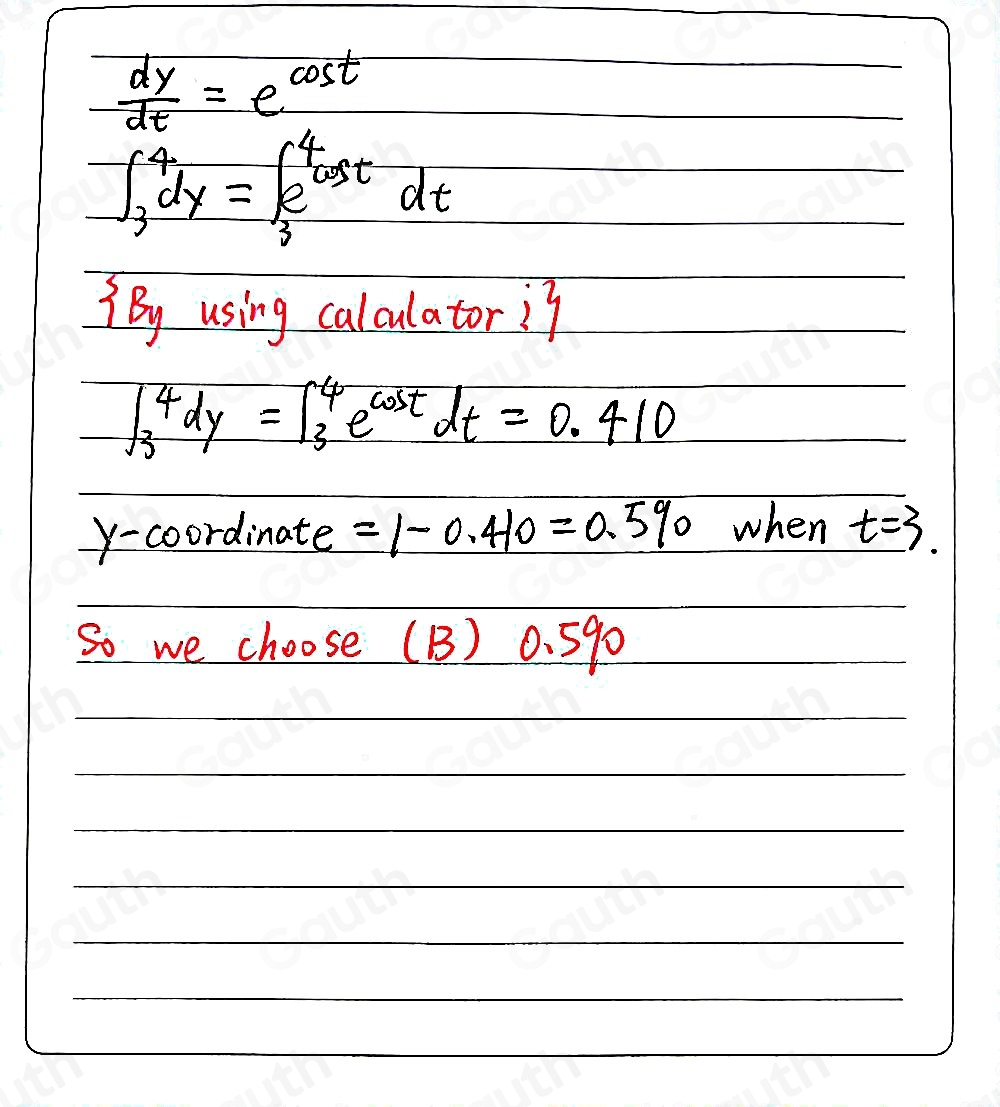 dy/dt = e^cost
∫₃⁴ dy = ∫₃⁴ e^cost dt
{By using calculator:}
∫₃⁴ dy = ∫₃⁴ e^cost dt = 0.410
y-coordinate = 1 - 0.410 = 0.590 when t=3.
So we choose (B) 0.590